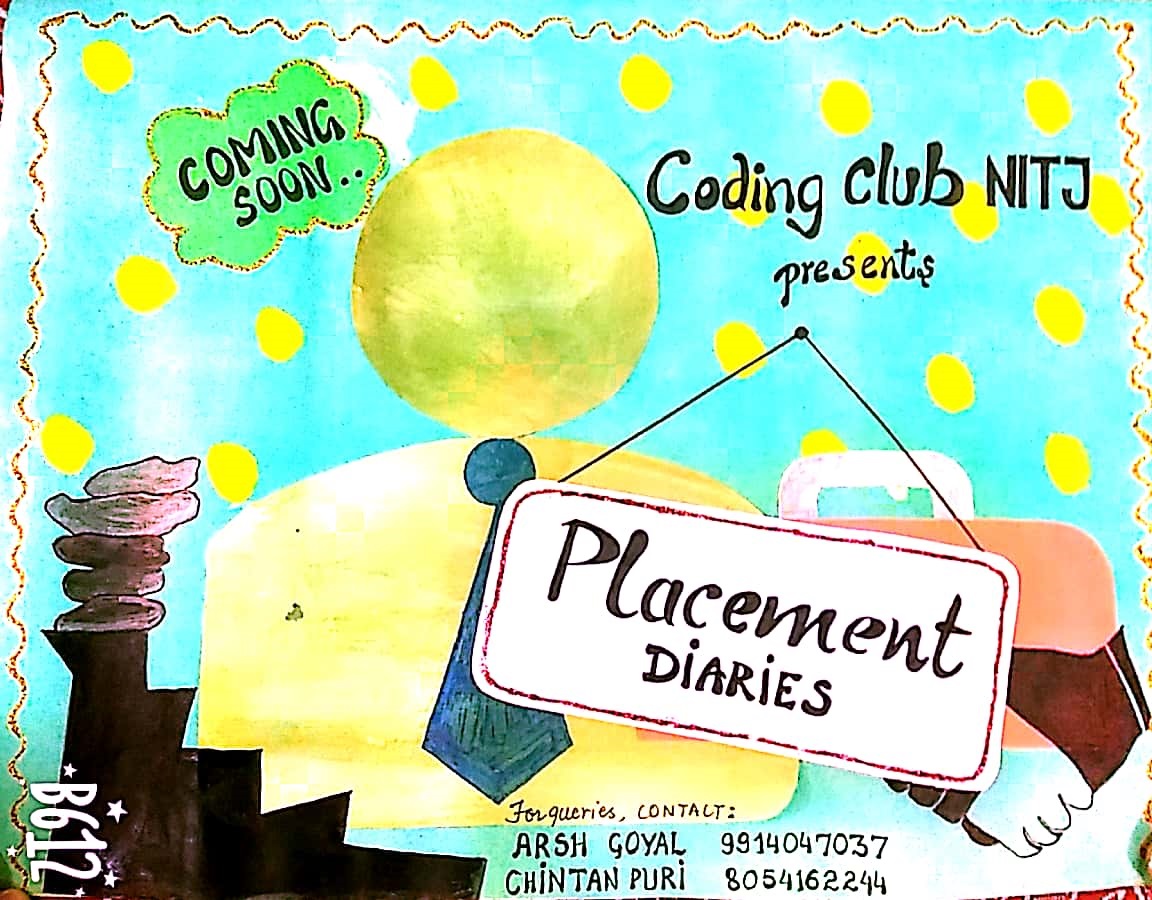 COMING
SOON..
Coding Club NITJ
presents
Placement
DiARiES
For queries, CONTACT:
ARSH GOYAL 9914047037
CHiNTAN PURI 8054162244
B612